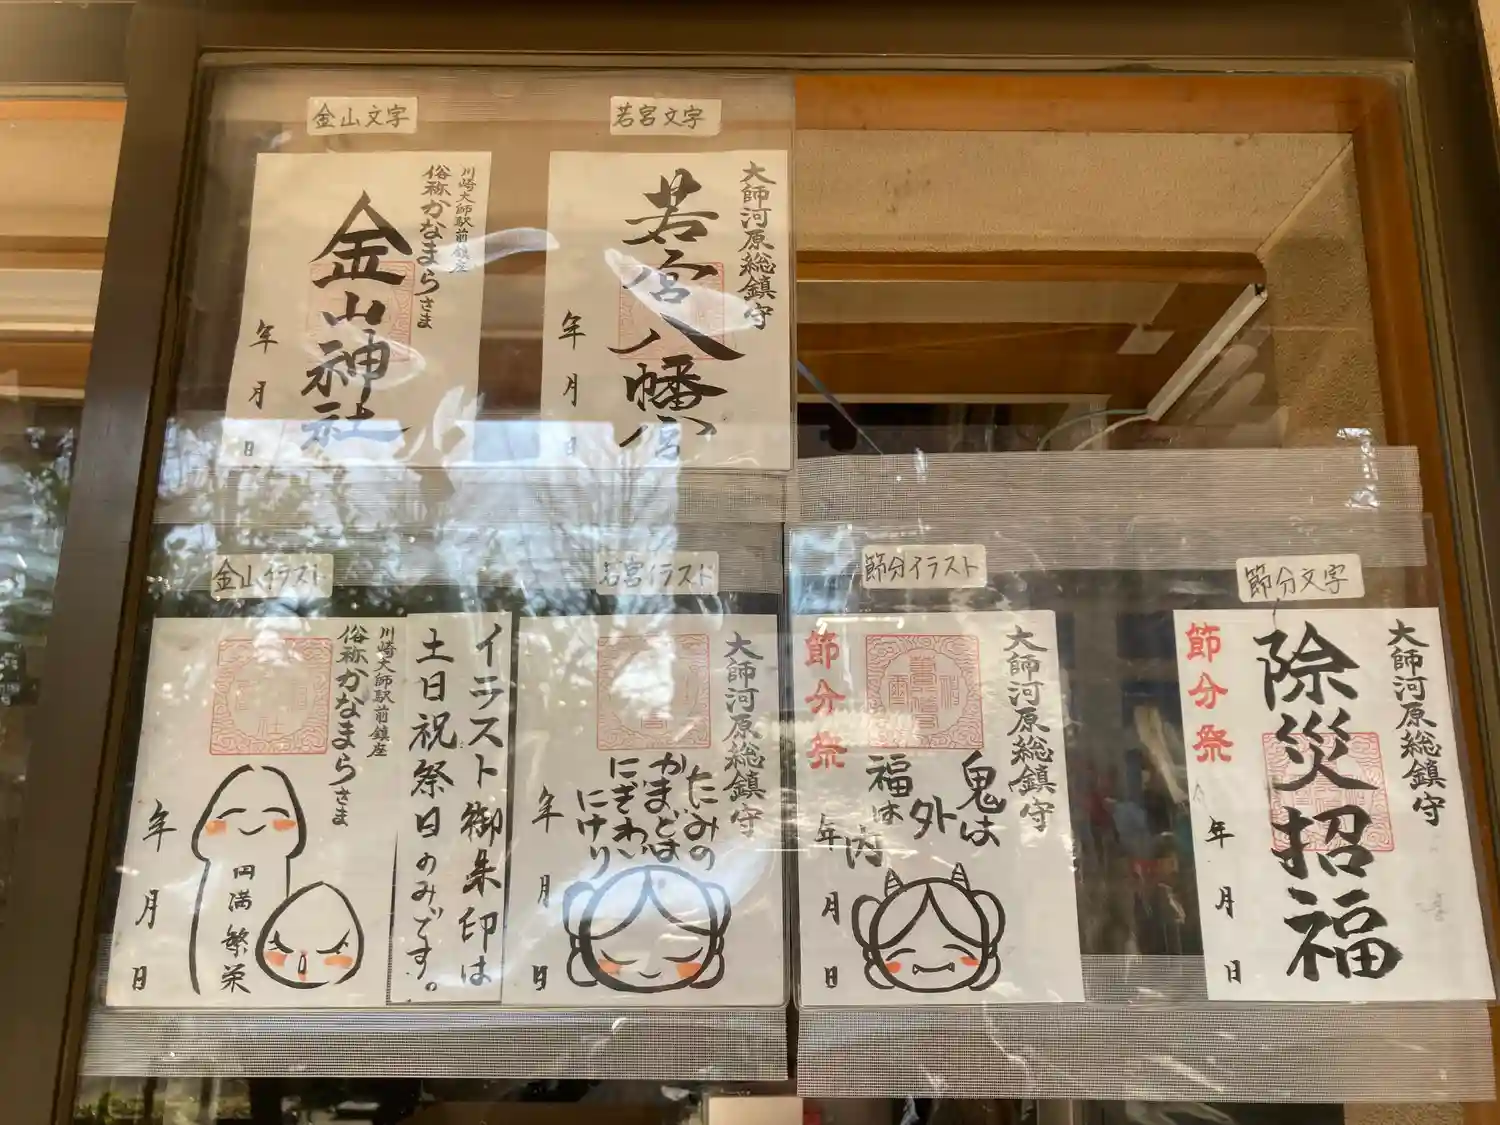 金山文字
川崎大師駅前鎮座
俗称かなまらさま
金山神社
年
月
日
若宮文字
大師河原総鎮守
若宮八幡宮
年
月
日
金山イラスト
川崎大師駅前鎮座
俗称かなまらさま
円満
繁栄
年
月
日
イラスト御朱印は
土日祝祭日のみです。
若宮イラスト
大師河原総鎮守
たみの
かまどは
にぎわい
にけり
年
月
日
節分イラスト
大師河原総鎮守
鬼は
外
福は
内
節分祭
年
月
日
節分文字
大師河原総鎮守
除災招福
節分祭
年
月
日